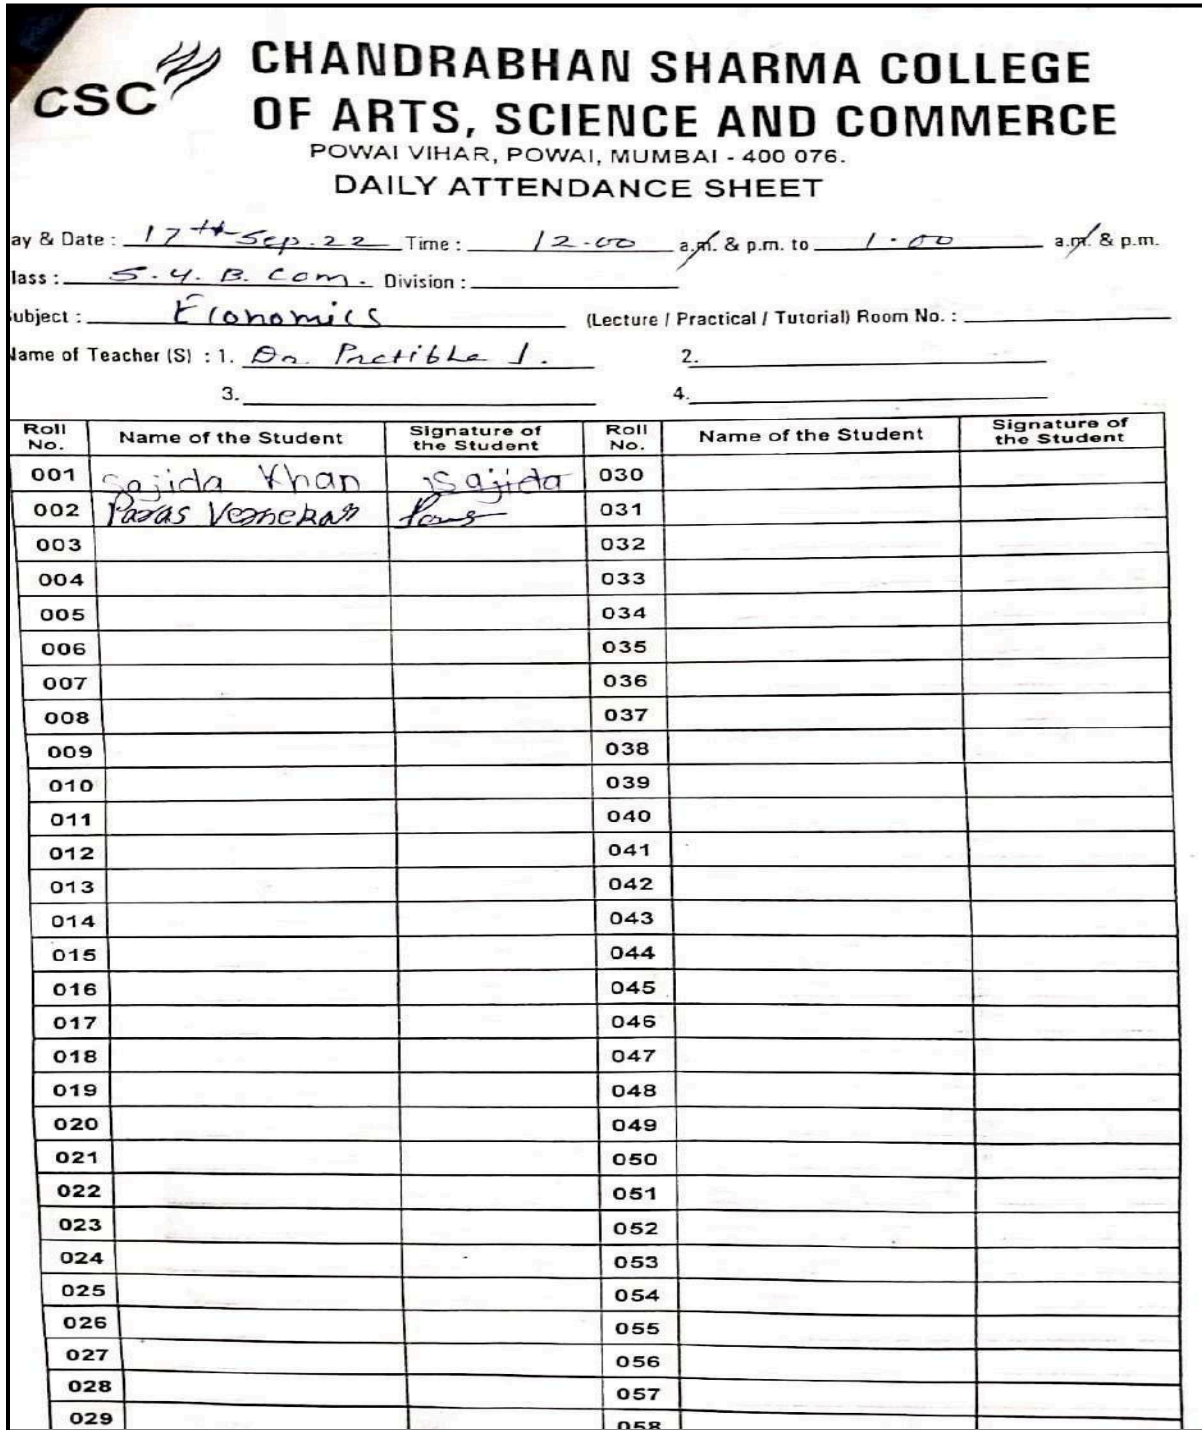 CSC
CHANDRABHAN SHARMA COLLEGE
OF ARTS, SCIENCE AND COMMERCE
POWAI VIHAR, POWAI, MUMBAI - 400 076.
DAILY ATTENDANCE SHEET
ay & Date : 17th Sep. 22 Time : 12.00 a.m. & p.m. to 1.00 a.m. & p.m.
lass : S.Y. B. Com. Division :
ubject : Economics (Lecture / Practical / Tutorial) Room No. :
Name of Teacher (S) : 1. Dr. Pratibha J. 2.
3. 4.
Roll No. Name of the Student Signature of the Student Roll No. Name of the Student Signature of the Student
001 Sajida Khan Sajida 030
002 Paras Vernekar 031
003 032
004 033
005 034
006 035
007 036
008 037
009 038
010 039
011 040
012 041
013 042
014 043
015 044
016 045
017 046
018 047
019 048
020 049
021 050
022 051
023 052
024 053
025 054
026 055
027 056
028 057
029 058